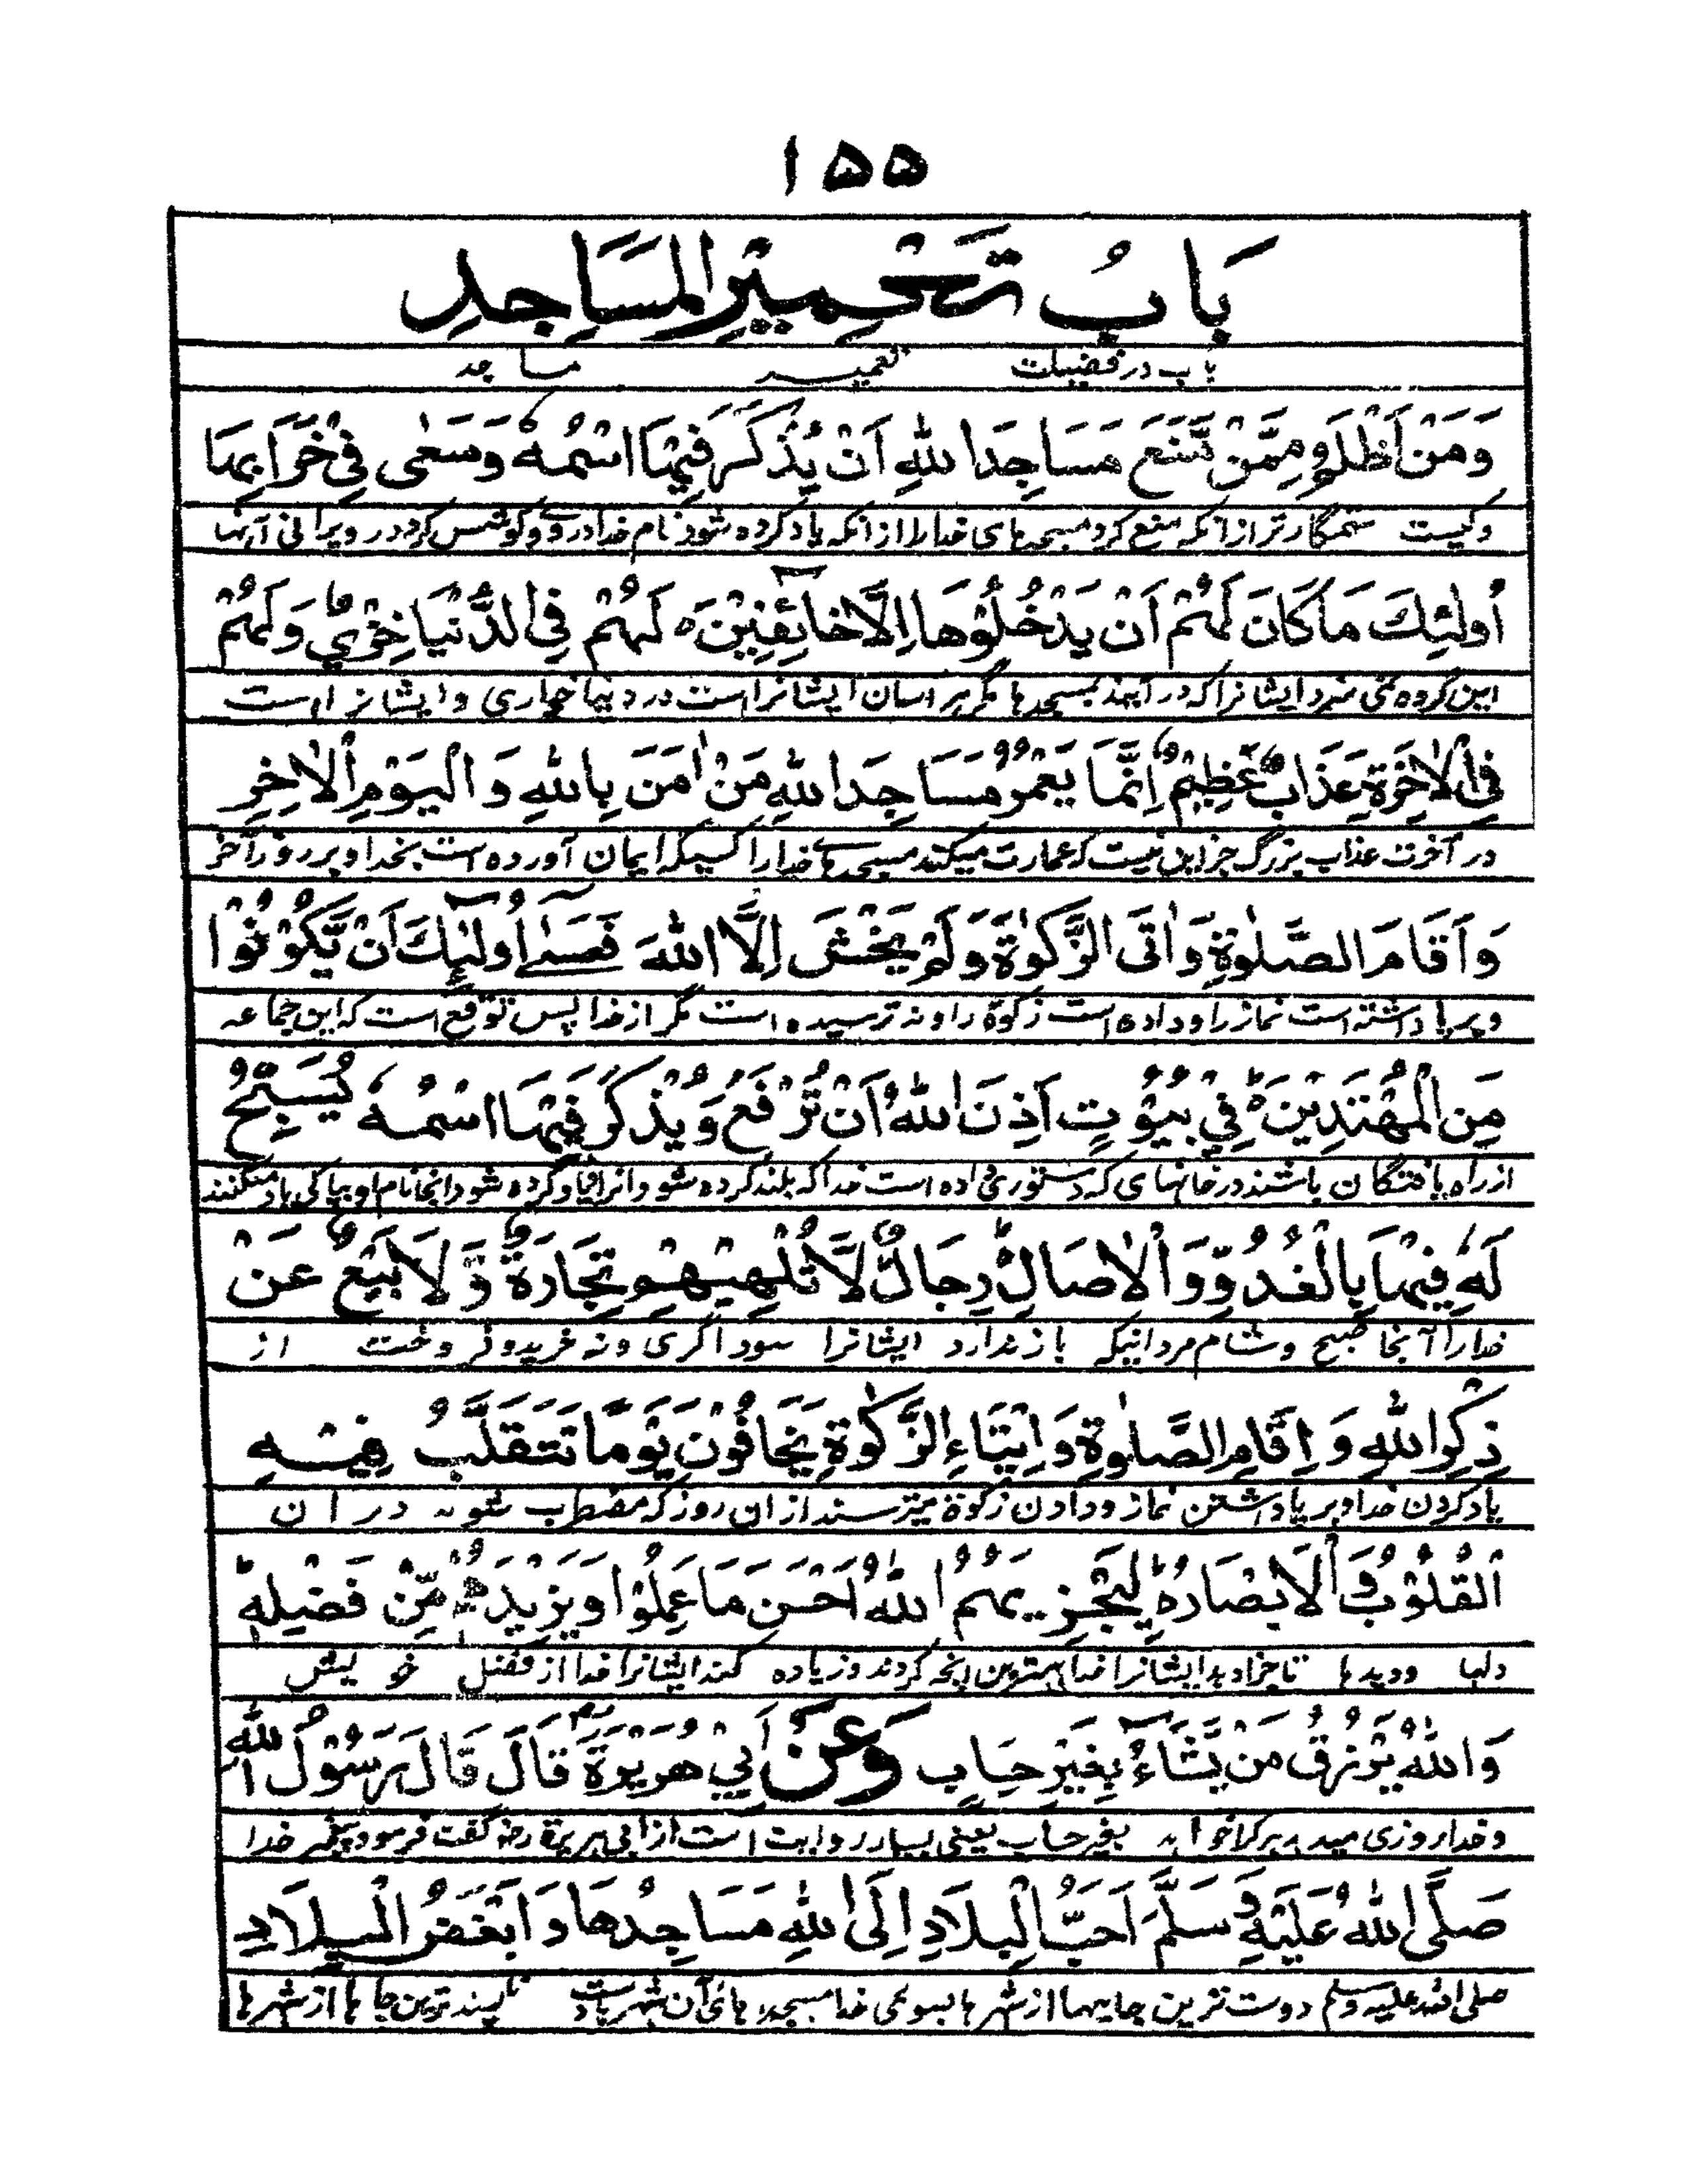 ۱۵۵
بَابُ تَعْمِيْرِ الْمَسَاجِدِ
باب در فضیلت تعمیر مساجد
وَمَنْ اَظْلَمُ مِمَّنْ مَّنَعَ مَسَاجِدَ اللهِ اَنْ يُّذْكَرَ فِيْهَا اسْمُهٗ وَسَعٰى فِيْ خَرَابِهَا
وکیست ستمگارتر از انکه منع کرد مسجدهای خدا را از انکه یاد کرده شود نام خدا در وے و کوشش کرد در ویرانی آنها
اُولٰئِكَ مَا كَانَ لَهُمْ اَنْ يَدْخُلُوْهَا اِلَّا خَائِفِيْنَ ہ لَهُمْ فِي الدُّنْيَا خِزْيٌ وَلَهُمْ
این گروه نمی سزد ایشانرا که در آیند بمسجدها مگر هراسان ایشانراست در دنیا خواری و ایشانراست
فِي الْاٰخِرَةِ عَذَابٌ عَظِيْمٌ اِنَّمَا يَعْمُرُ مَسَاجِدَ اللهِ مَنْ اٰمَنَ بِاللهِ وَالْيَوْمِ الْاٰخِرِ
در آخرت عذاب بزرگ جز این نیست که عمارت میکند مسجدهاے خدا را کسیکه ایمان آورده است بخدا و بروز آخر
وَاَقَامَ الصَّلٰوةَ وَاٰتَى الزَّكٰوةَ وَلَمْ يَخْشَ اِلَّا اللهَ فَعَسٰے اُولٰئِكَ اَنْ يَّكُوْنُوْا
و برپا داشته است نماز را و داده است زکوة را و نه ترسیده است مگر از خدا پس توقع است که این جماعه
مِنَ الْمُهْتَدِيْنَ ہ فِيْ بُيُوْتٍ اَذِنَ اللهُ اَنْ تُرْفَعَ وَيُذْكَرَ فِيْهَا اسْمُهٗ يُسَبِّحُ
از راه یافتگان باشند در خانهای که دستوری داده است خدا که بلند کرده شود انرا و یاد کرده شود انجا نام او بپاکی یاد میکنند
لَهٗ فِيْهَا بِالْغُدُوِّ وَالْاٰصَالِ رِجَالٌ لَّا تُلْهِيْهِمْ تِجَارَةٌ وَّلَا بَيْعٌ عَنْ
خدا را آنجا صبح و شام مردانیکه باز ندارد ایشانرا سوداگری و نه خرید و فروخت از
ذِكْرِ اللهِ وَاِقَامِ الصَّلٰوةِ وَاِيْتَاءِ الزَّكٰوةِ يَخَافُوْنَ يَوْمًا تَتَقَلَّبُ فِيْهِ
یاد کردن خدا و برپا داشتن نماز و دادن زکوة میترسند از ان روز که مضطرب شوند در ان
الْقُلُوْبُ وَالْاَبْصَارُ لِيَجْزِيَهُمُ اللهُ اَحْسَنَ مَا عَمِلُوْا وَيَزِيْدَهُمْ مِّنْ فَضْلِهٖ
دلها و دیدها تا جزا دهد ایشانرا خدا بهترین انچه کردند و زیاده کند ایشانرا خدا از فضل خویش
وَاللهُ يَرْزُقُ مَنْ يَّشَاءُ بِغَيْرِ حِسَابٍ وَعَنْ اَبِيْ هُرَيْرَةَ قَالَ قَالَ رَسُوْلُ اللهِ
و خدا روزی میدهد هر کرا خواهد بغیر حساب یعنی بسیار روایت است از ابی هریرة رض گفت فرمود پیغمبر خدا
صَلَّى اللهُ عَلَيْهِ وَسَلَّمَ اَحَبُّ الْبِلَادِ اِلَى اللهِ مَسَاجِدُهَا وَاَبْغَضُ الْبِلَادِ
صلی الله علیه وسلم دوست ترین جایها از شهرها بسوئی خدا مسجدهائی آن شهرهاست ناپسندترین جاها از شهرها